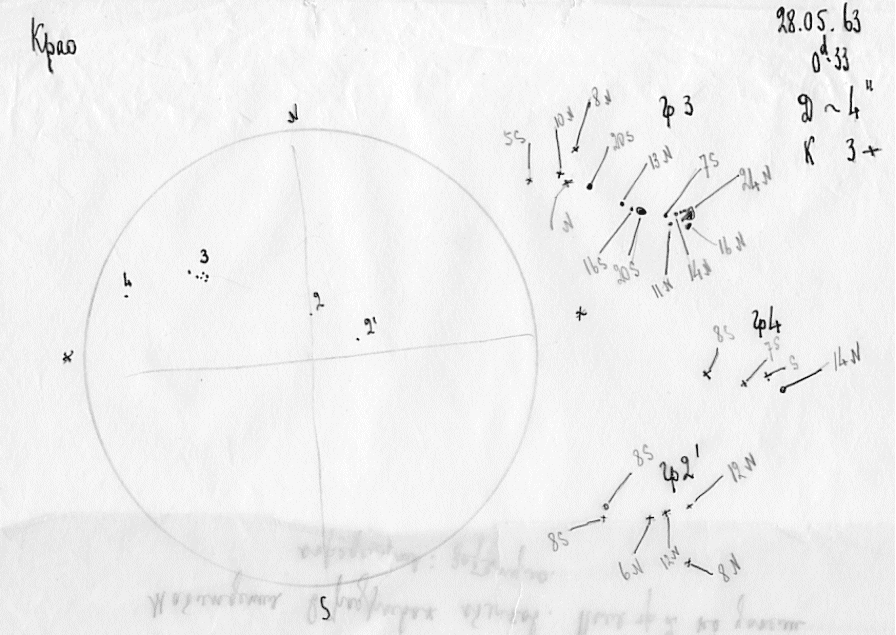 Крао
28.05.63
0ᵈ.33
D ~ 4"
K 3+
N
S
4
3
2
2'
гр 3
5S
10N
8N
20S
N
13N
7S
24N
16S
20S
11N
14N
16N
гр4
8S
7S
S
14N
гр2'
8S
12N
8S
6N
12N
8N